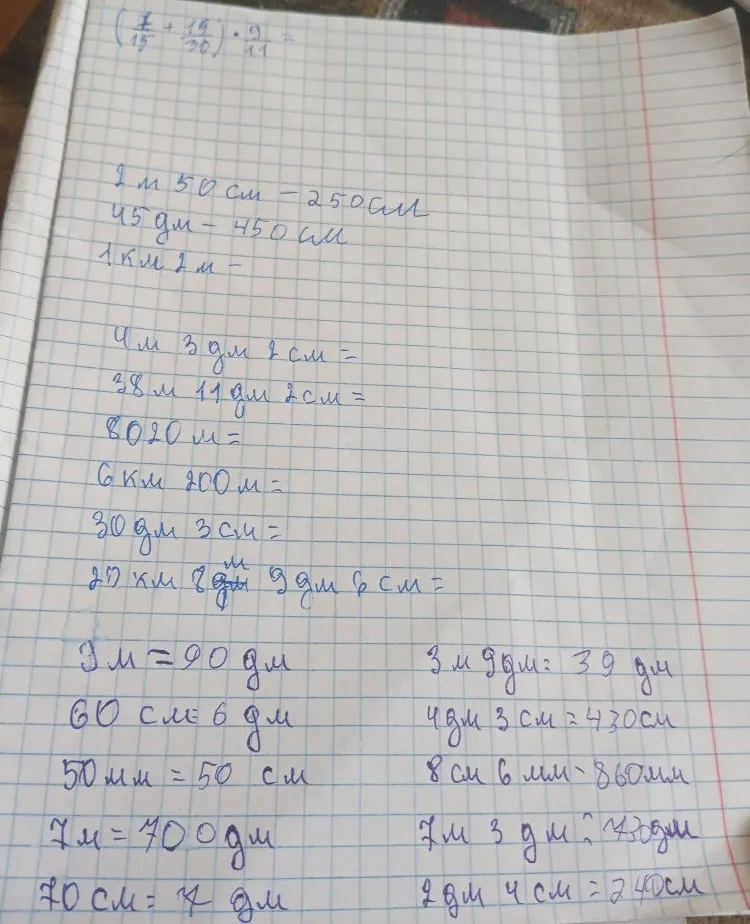 (7/15 + 19/30) · 9/11 =
2 м 50 см – 250 см
45 дм – 450 см
1 км 2 м –
4 м 3 дм 2 см =
38 м 11 дм 2 см =
8020 м =
6 км 200 м =
30 дм 3 см =
20 км 8 м 9 дм 6 см =
9 м = 90 дм
60 см = 6 дм
50 мм = 50 см
7 м = 700 дм
70 см = 7 дм
3 м 9 дм = 39 дм
4 дм 3 см = 430 см
8 см 6 мм - 860 мм
7 м 3 дм = 730 дм
2 дм 4 см = 240 см